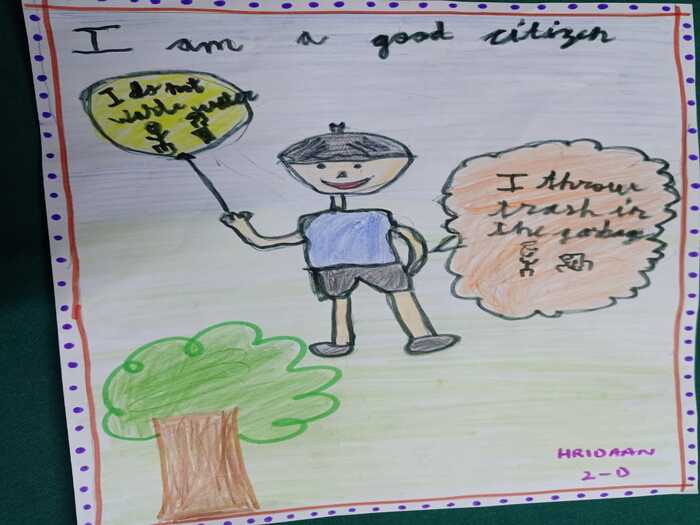 I am a good citizen
I do not
waste
I throw
trash in
the garbage
HRIDAAN
2-D